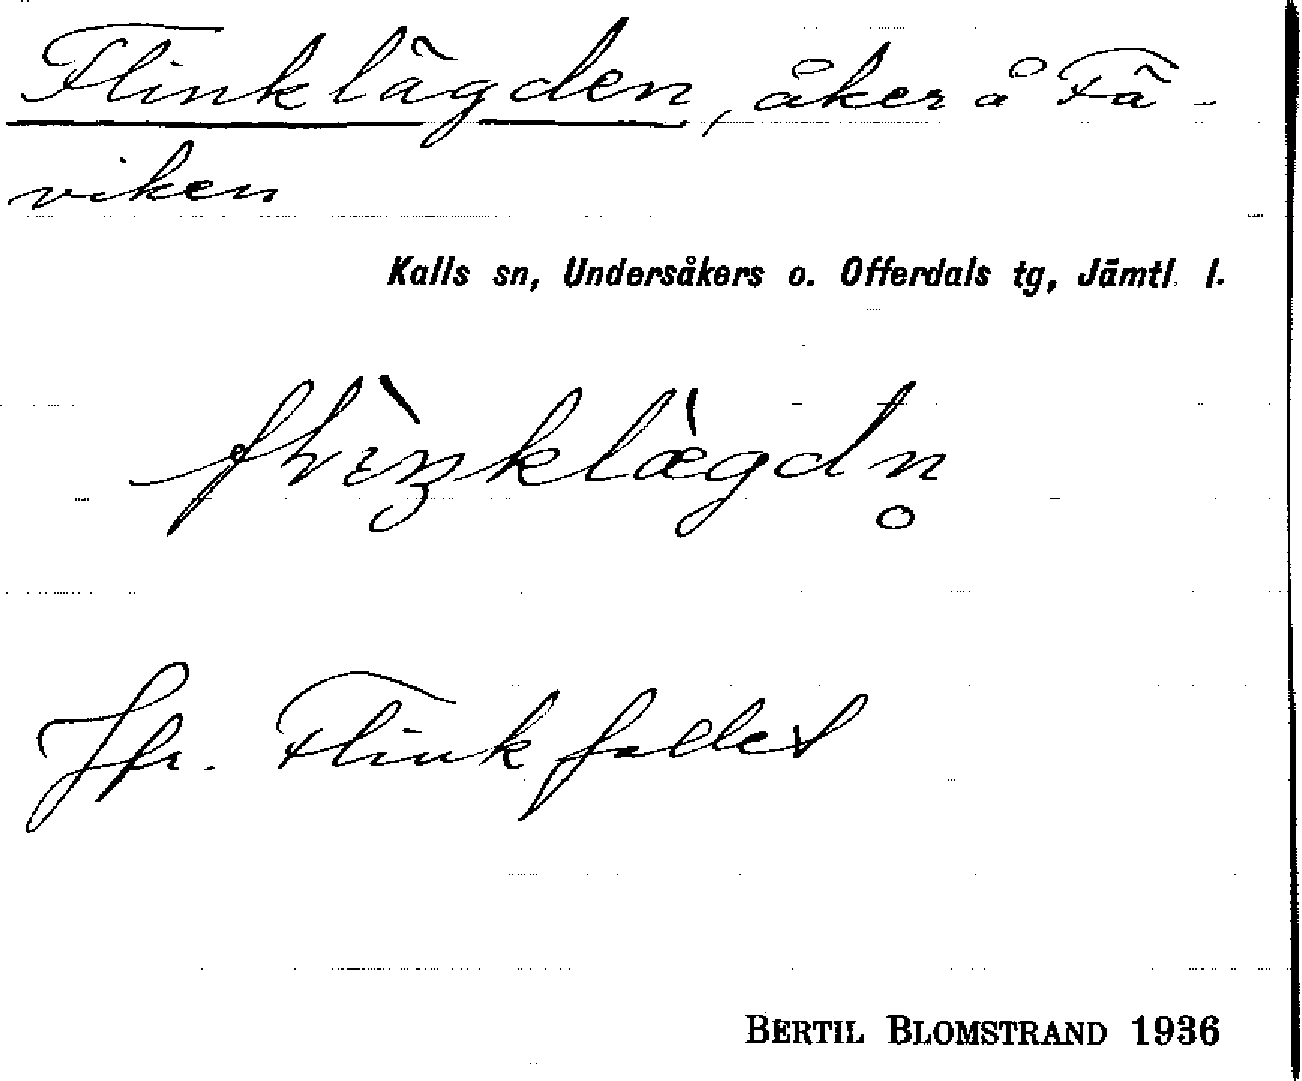 Flinklägden, åker å Fä-
viken
Kalls sn, Undersåkers o. Offerdals tg, Jämtl. l.
Jfr. Flinkfallet
BERTIL BLOMSTRAND 1936